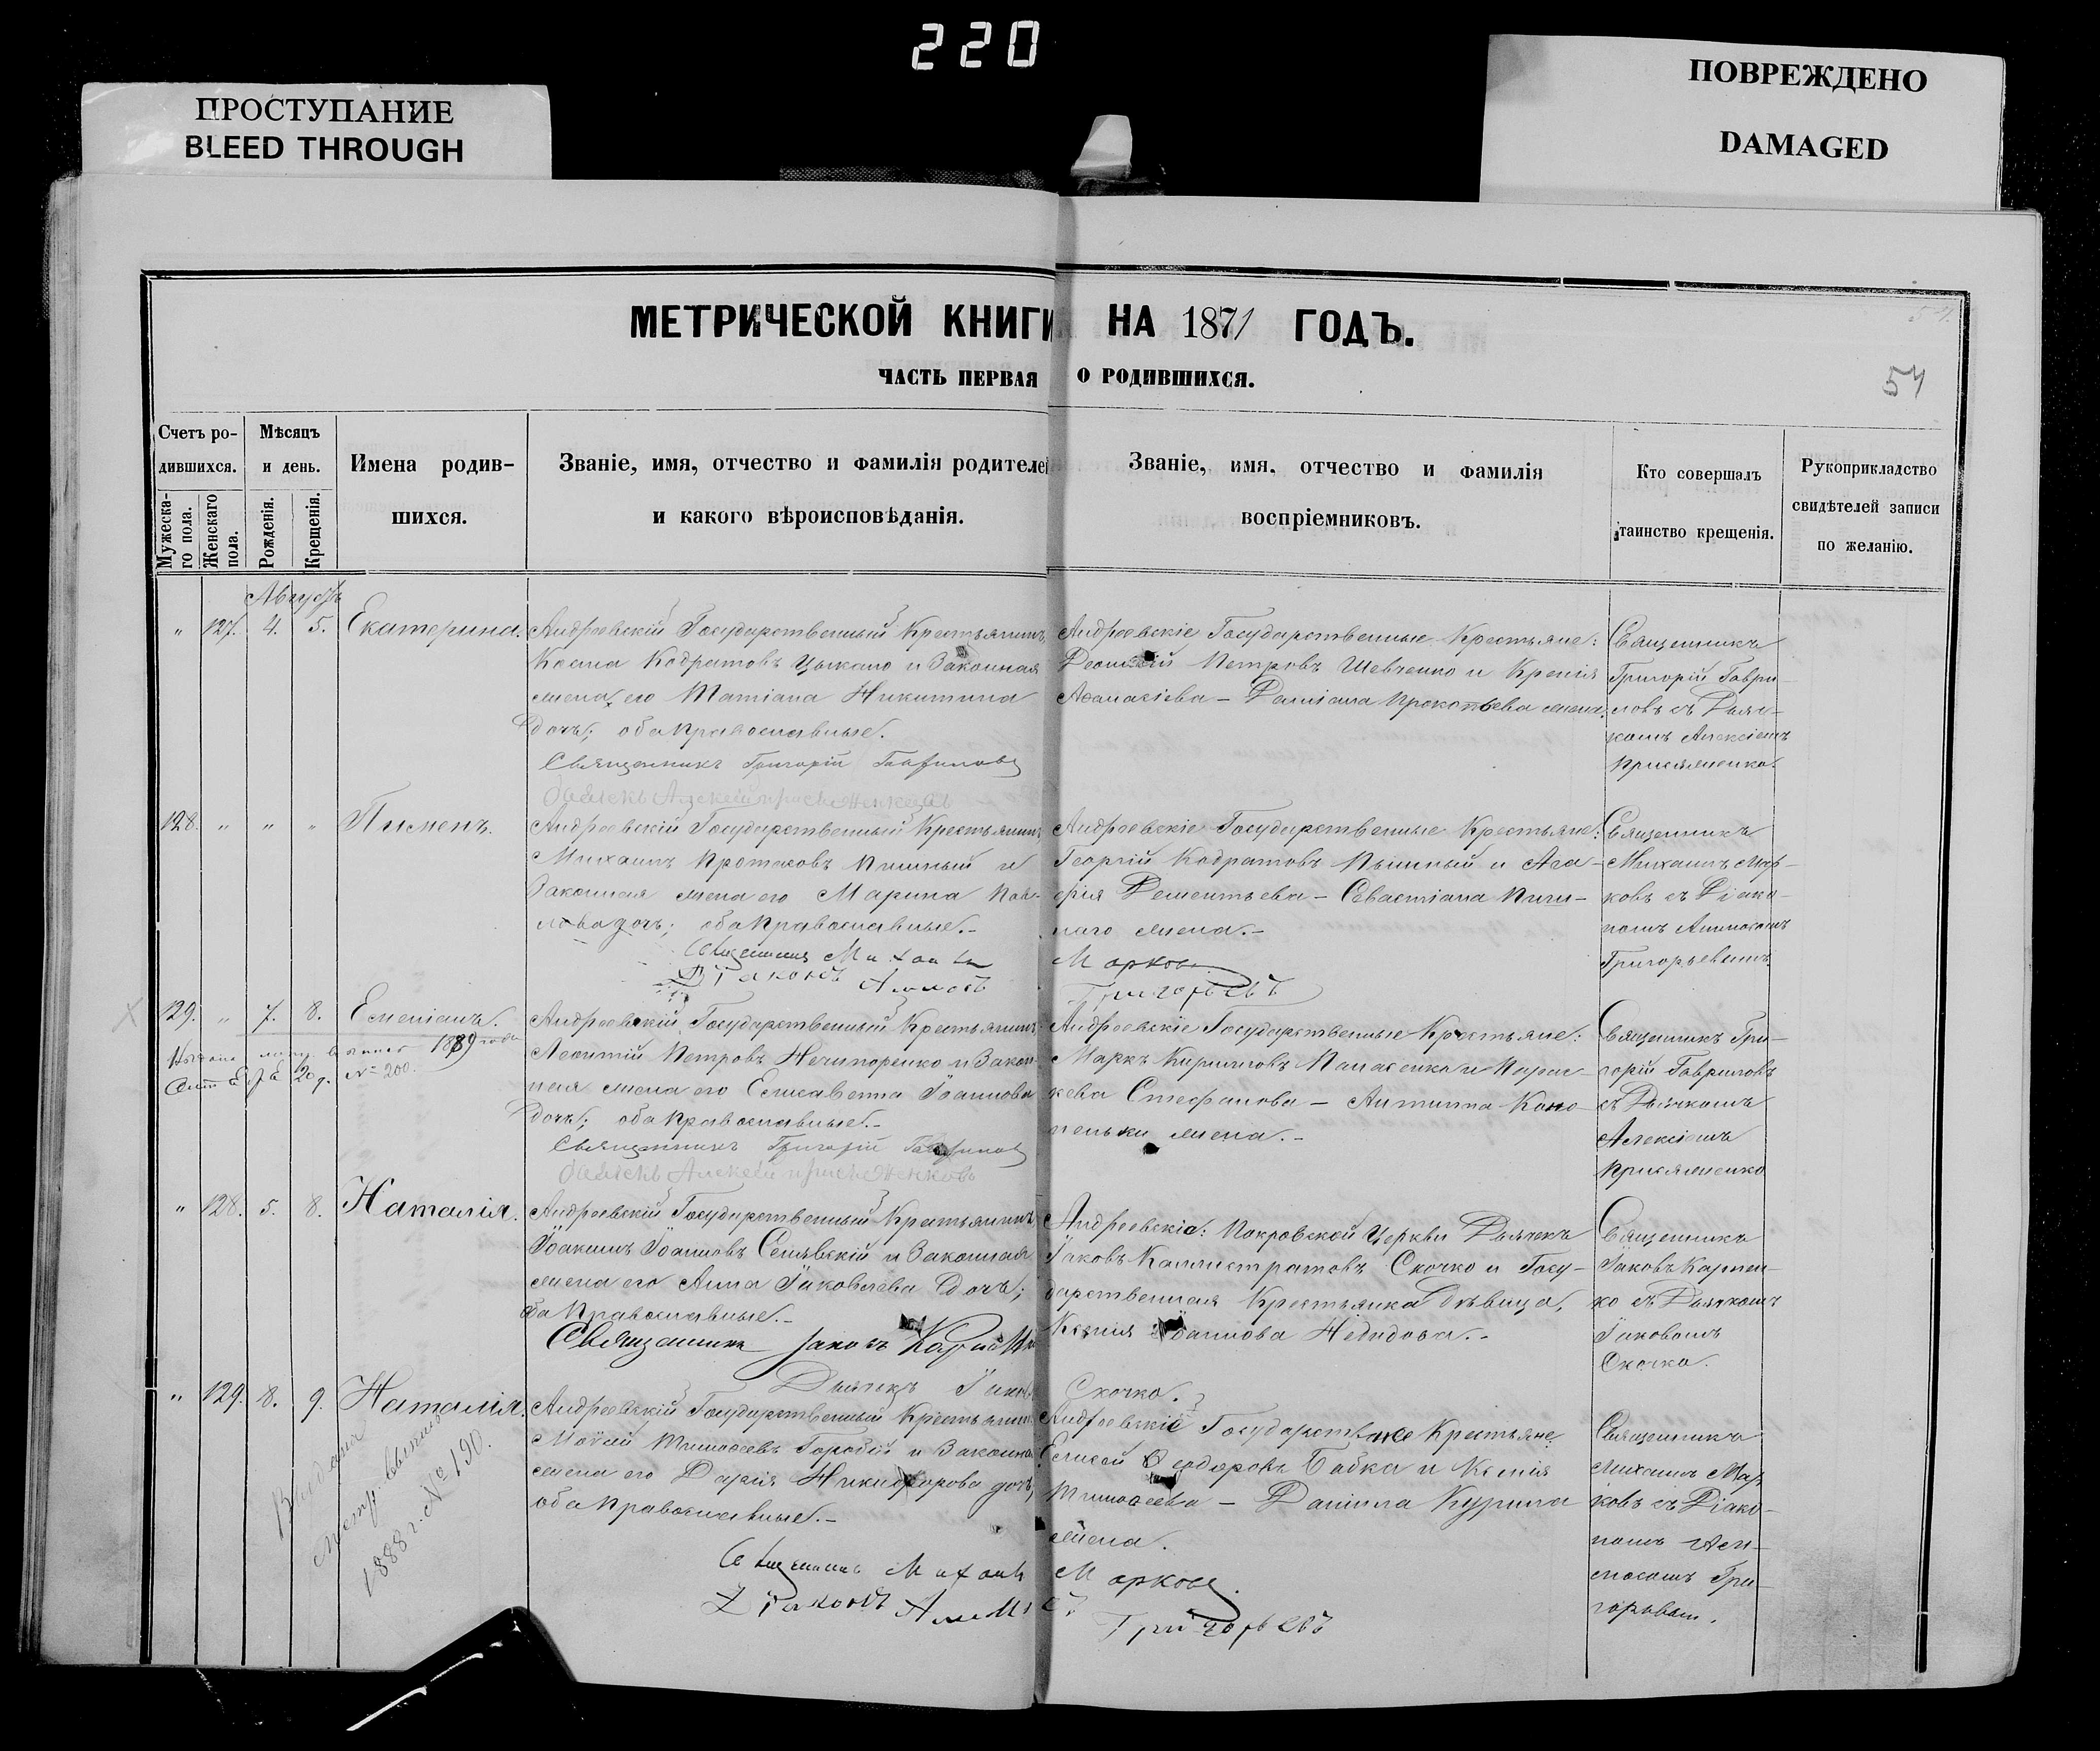 220
ПРОСТУПАНИЕ
BLEED THROUGH
ПОВРЕЖДЕНО
DAMAGED
МЕТРИЧЕСКОЙ КНИГИ НА 1871 ГОДЪ.
ЧАСТЬ ПЕРВАЯ О РОДИВШИХСЯ.
54
Счетъ ро-
дившихся.
Мужеска-
го пола.
Женскаго
пола.
Мѣсяцъ
и день.
Рожденія.
Крещенія.
Имена родив-
шихся.
Званіе, имя, отчество и фамилія родителей
и какого вѣроисповѣданія.
Званіе, имя, отчество и фамилія
воспріемниковъ.
Кто совершалъ
таинство крещенія.
Рукоприкладство
свидѣтелей записи
по желанію.
Августъ
" 127. 4. 5. Екатерина.
Андреевскій Государственный Крестьянинъ
Косма Кодратовъ Цыкало и Законная
жена его Татіана Никитина
дочь; оба православные.
Священникъ Григорій Гавриловъ
Андреевскіе Государственные Крестьяне:
Леонтій Петровъ Шевченко и Ксенія
Аѳанасіева – Даміана Прокопьева жена.
Священникъ
Григорій Гаври-
ловъ съ Дьяч-
комъ Алексіемъ
Присяженко.
128. " " " Пименъ.
Андреевскій Государственный Крестьянинъ
Михаилъ Протасовъ Пишный и
Законная жена его Марина Пав-
лова дочь; оба православные.-
Священникъ Михаилъ Марковъ
Діаконъ Аммосъ Григорьевъ
Андреевскіе Государственные Крестьяне:
Георгій Кодратовъ Пышный и Ага-
ѳія Дементьева – Севастіана Пиш-
наго жена.-
Священникъ
Михаилъ Мар-
ковъ съ Діако-
номъ Аммосомъ
Григорьевымъ.
129. " 7. 8. Емеліанъ.
1889 года
20 г. № 200.
Андреевскій Государственный Крестьянинъ
Леонтій Петровъ Нечипоренко и Закон-
ная жена его Елисавета Іоаннова
дочь; оба православные.-
Священникъ Григорій Гавриловъ
Андреевскіе Государственные Крестьяне:
Маркъ Кирилловъ Панасенко и Парас-
кева Стефанова – Антипа Коно-
пельки жена.-
Священникъ Гри-
горій Гавриловъ
съ Дьячкомъ
Алексіемъ
Присяженко
" 128. 5. 8. Наталія.
Андреевскій Государственный Крестьянинъ
Іоакимъ Іоанновъ Синявскій и Законная
жена его Анна Іаковлева дочь;
оба православные.-
Священникъ Іаковъ
Дьячекъ Іаковъ Скочко.
Андреевскіе: Покровской Церкви Дьячекъ
Іаковъ Каллистратовъ Скочко и Госу-
дарственная Крестьянка Дѣвица,
Ксенія Іоаннова
Священникъ
Іаковъ
съ Дьячкомъ
Іаковомъ
Скочко.
" 129. 8. 9. Наталія.
Выдана
метр. выпись
1888 г. № 190.
Андреевскій Государственный Крестьянинъ
Моѵсей Тимоѳеевъ Горобій и Законная
жена его Дарія Никифорова дочь,
оба православные.-
Священникъ Михаилъ Марковъ.
Діаконъ Амосъ Григорьевъ
Андреевскіе Государственные Крестьяне:
Елисей Ѳедоровъ Бабка и Ксенія
Тимоѳеева – Даніила Курила
жена.
Священникъ
Михаилъ Мар-
ковъ съ Діако-
номъ Ам-
мосомъ Гри-
горьевым.